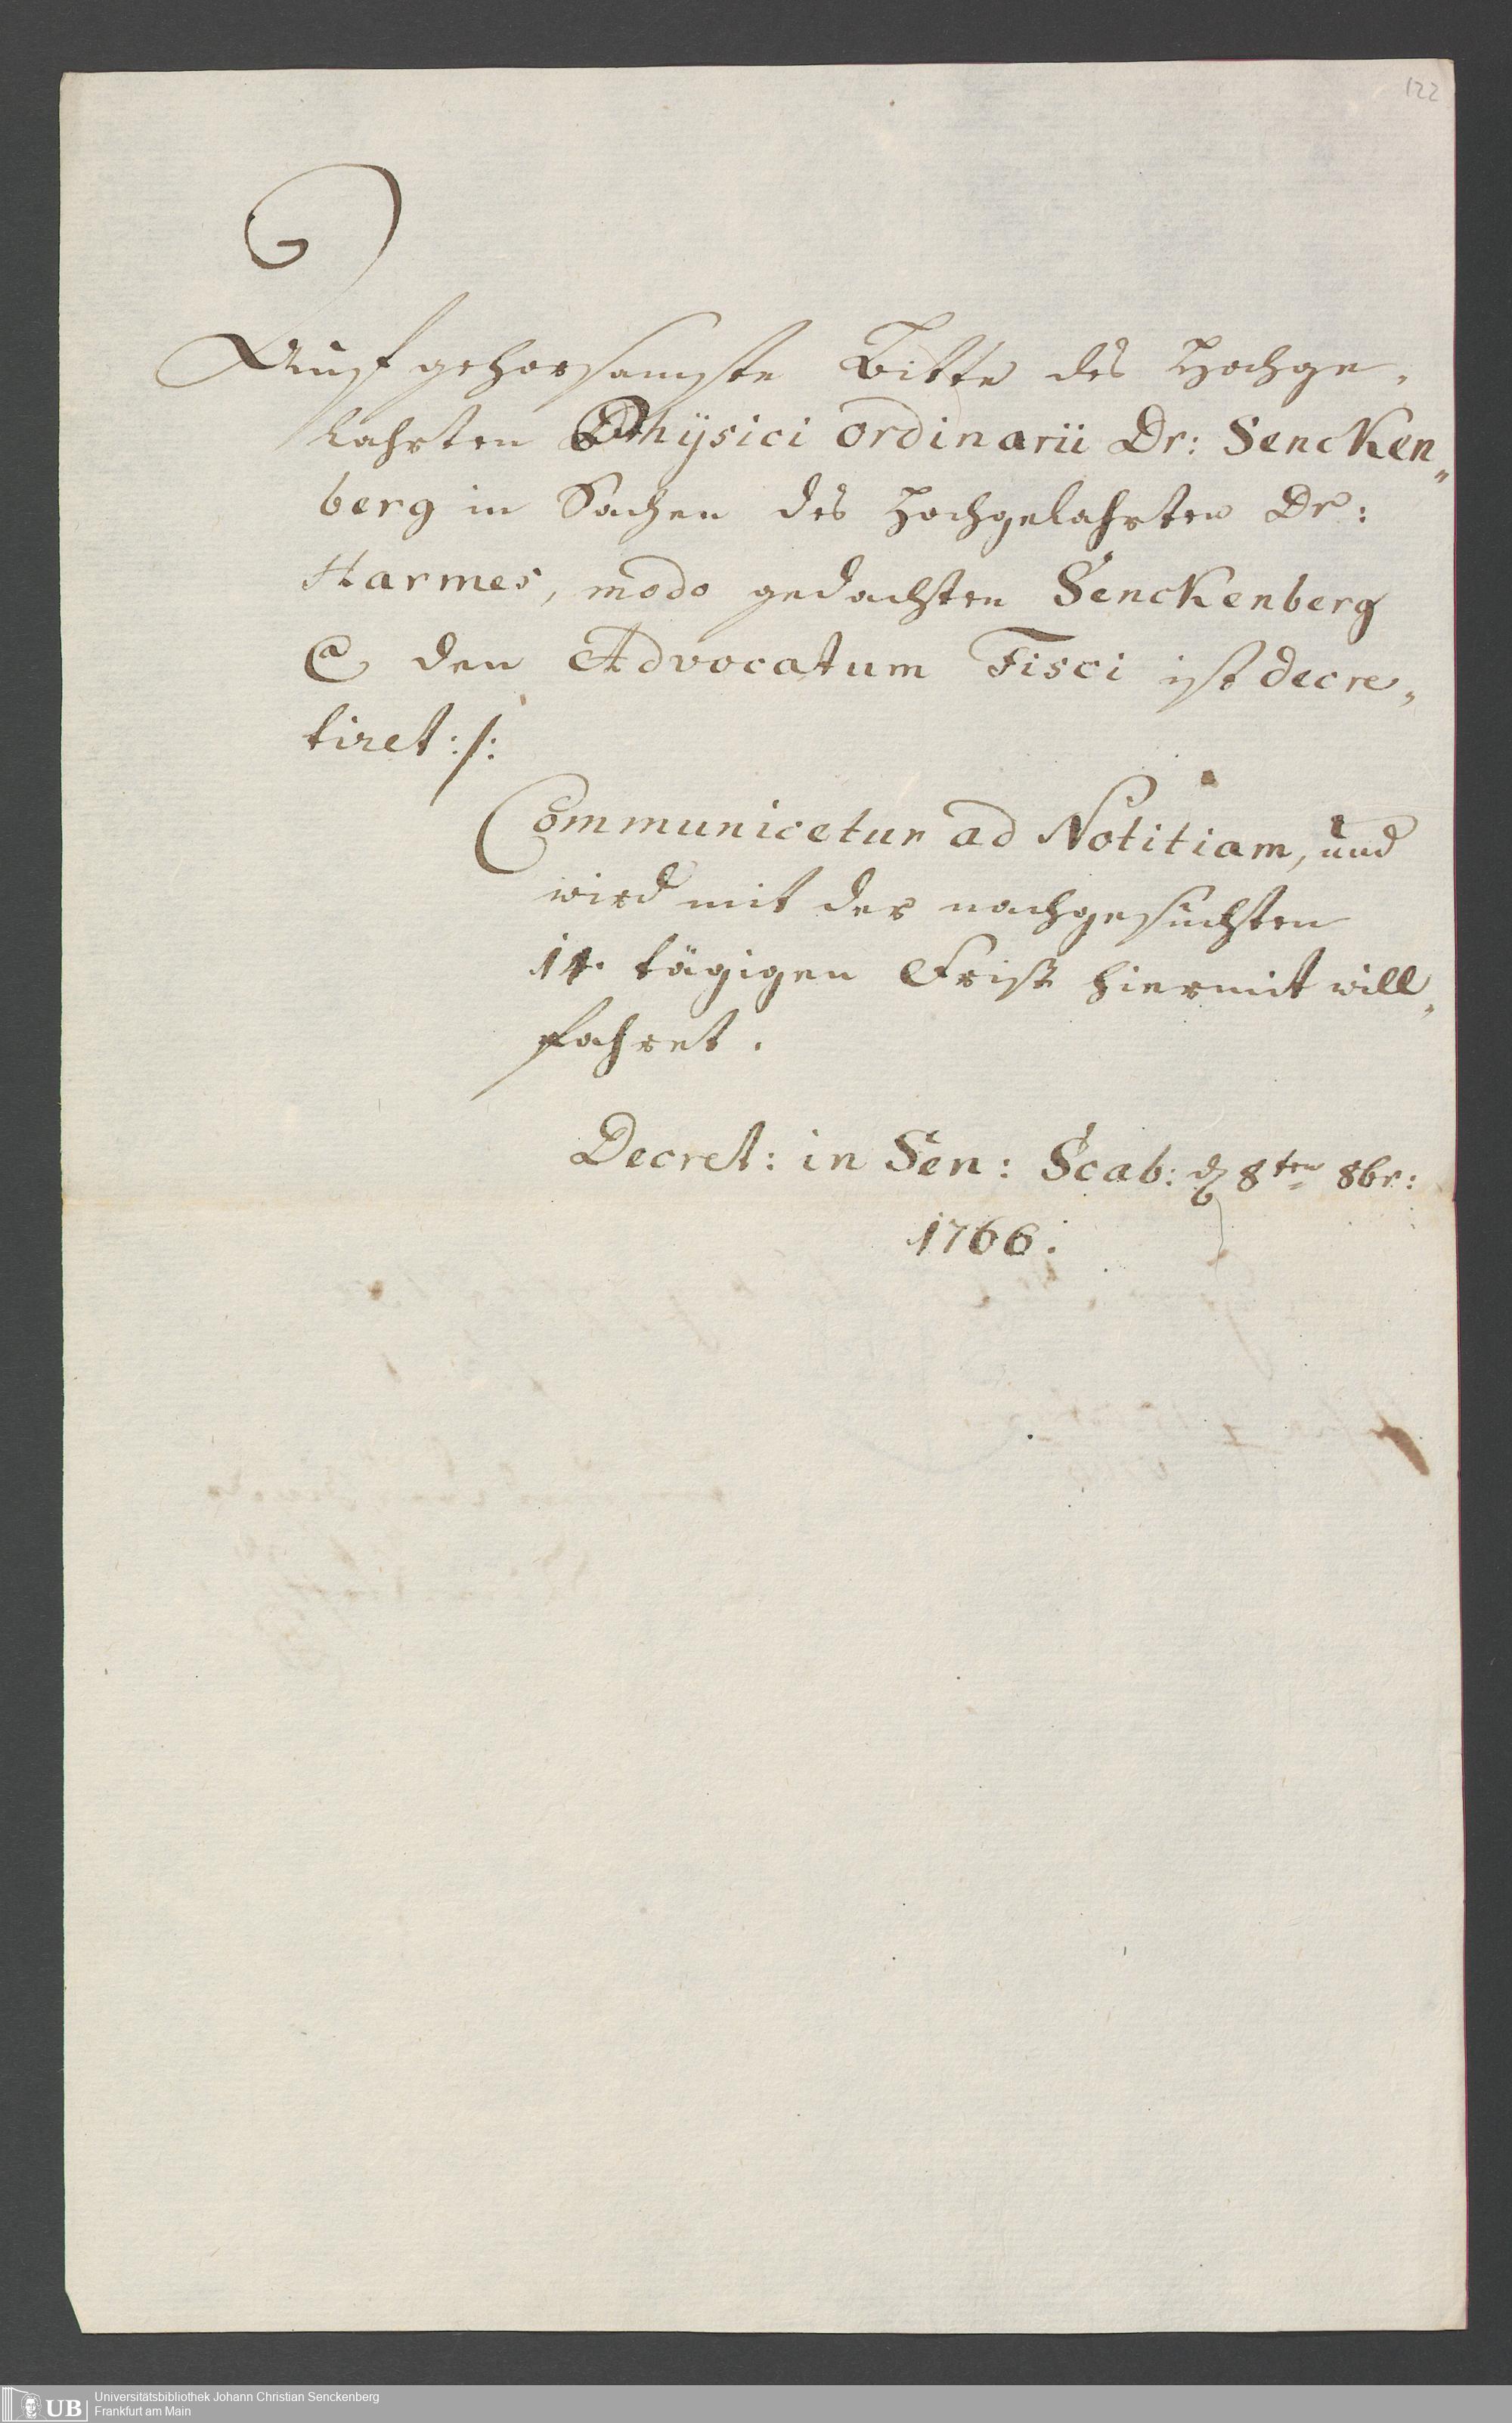 122
Auf gehorsamste Bitte des Hochge„
lahrten Physici ordinarii Dr: Sencken„
berg in Sachen des Hochgelahrten Dr:
Harmes, modo gedachten Senckenberg
Ca den Advocatum Fisci ist decre„
tiret:/:
Communicetur ad Notitiam, und
wird mit der nachgesuchten
14. tägigen Frist hiermit will„
fahret.
Decret: in Sen: Scab: d 8ten 8br:
1766.
UB
Universitätsbibliothek Johann Christian Senckenberg
Frankfurt am Main